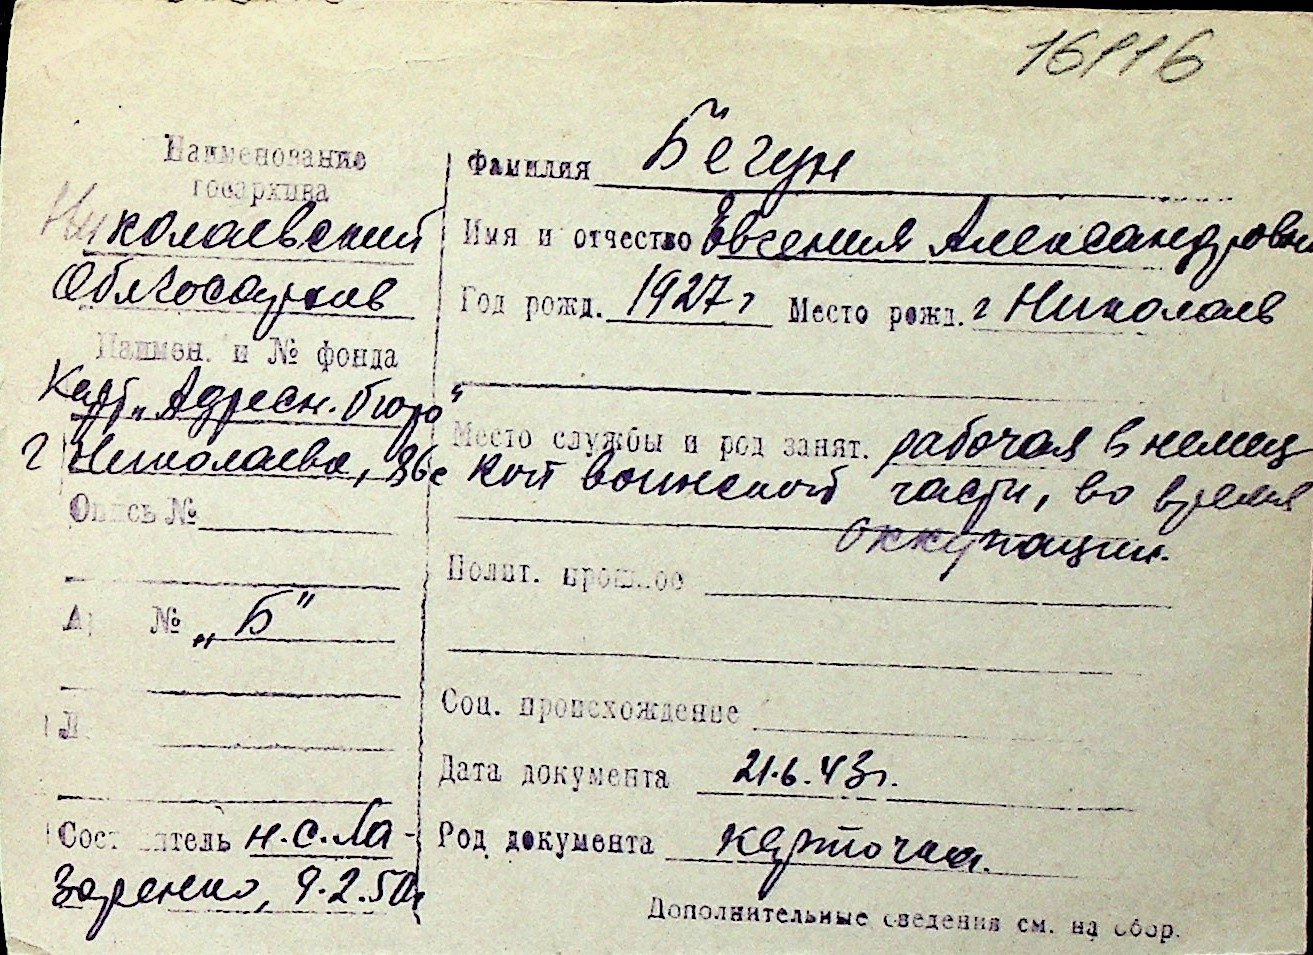 16116
Наименование
госархива
Николаевский
Облгосархив
Наимен. и № фонда
Карт. „Адресн. бюро"
г Николаева,
Опись №
А № „Б"
Л
Составитель Н.С. Ла-
заренко, 9.2.50г
Фамилия Бегун
Имя и отчество Евгения Александровн
Год рожд. 1927г Место рожд. г Николаев
Место службы и род занят. рабочая в немец
кой воинской части, во время
оккупации.
Полит. прошлое
Соц. происхождение
Дата документа 21.6.43г.
Род документа карточка.
Дополнительные сведения см. на обор.